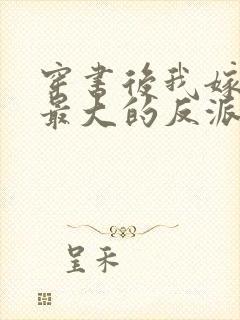 穿书後我嫁
最大的反派
呈禾